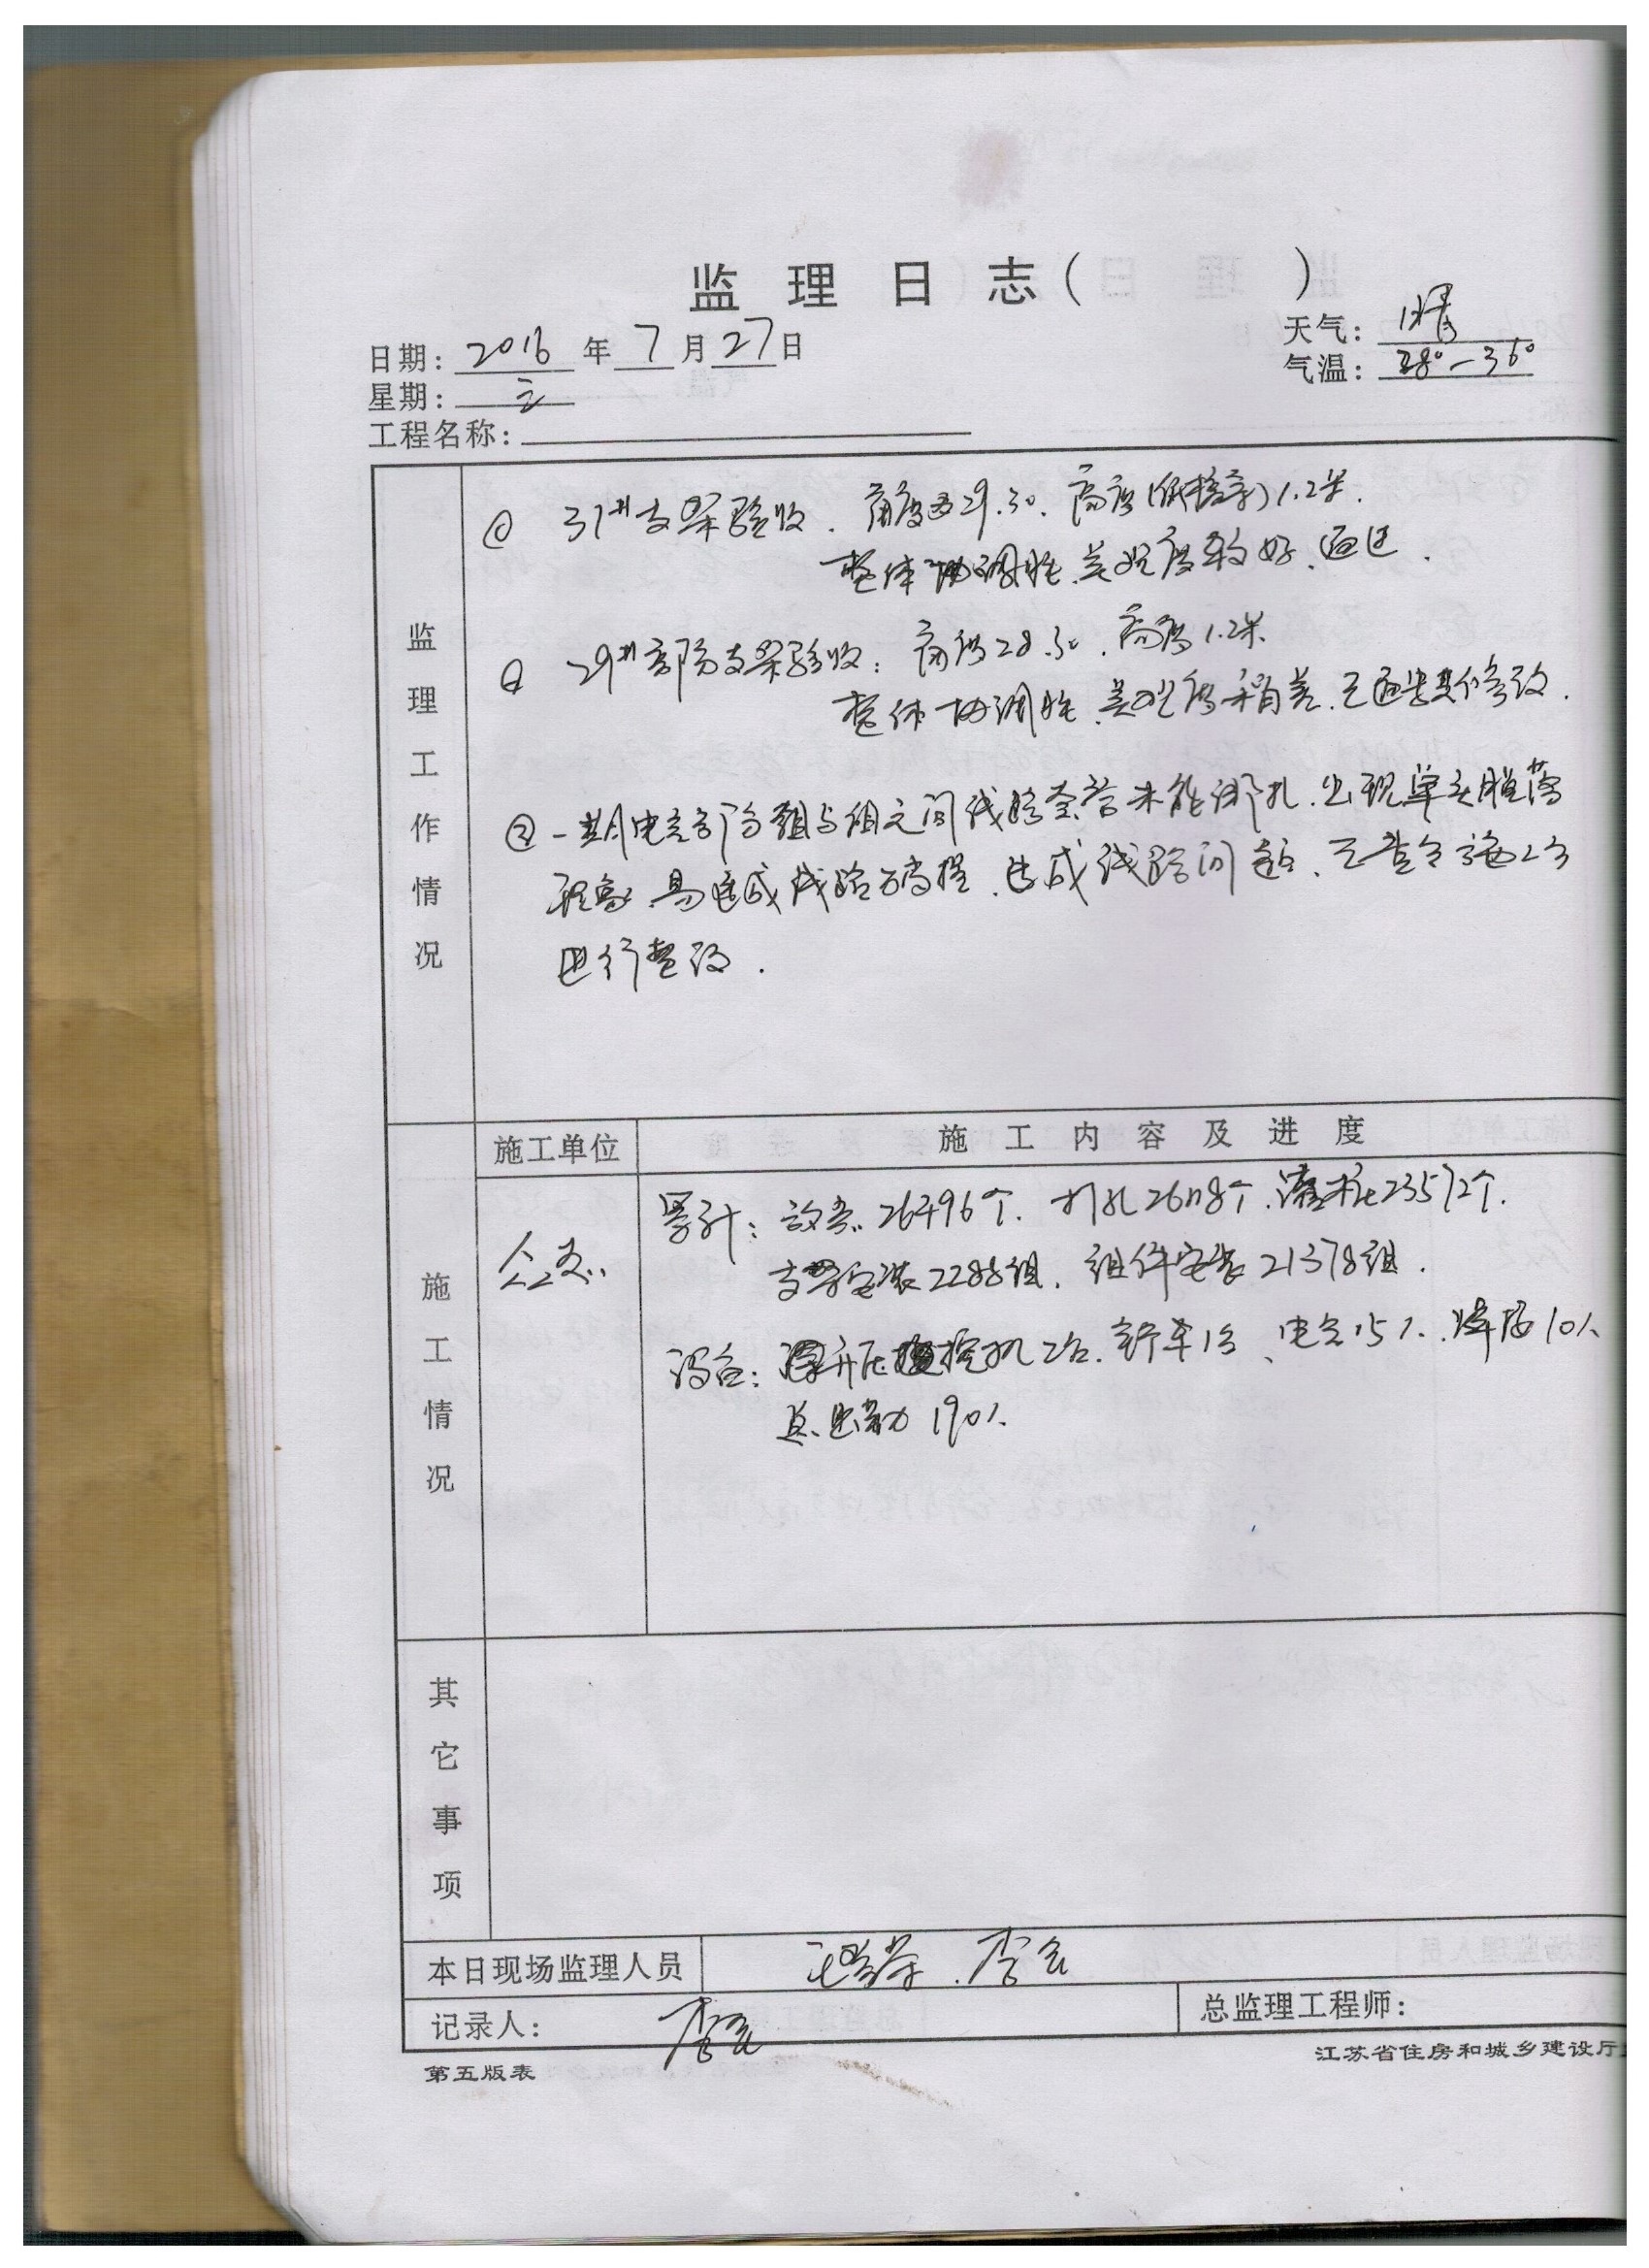 监理日志( )
日期: 2016 年 7 月 27 日
天气: 晴
气温: 28°—36°
星期: 三
工程名称:
监理工作情况
31#支架验收. 角度为29.30. 高度(低檐高)1.2米.
整体协调性、美观度较好、通过.
29#部阵支架验收: 角度28.30. 高度1.2米
整体协调性、美观度稍差.已通知其修改.
② 一期电气部阵组与组之间线路套管未能绑扎.出现单头脱落
现象.易造成线路破损、造成线路问题、已责令施工方
进行整改.
施工单位
施工内容及进度
施工情况
累计: 放点 26496个. 打孔26118个.灌桩23572个.
支架安装2288组. 组件安装21378组.
设备: 挖机2台. 1台、电气15人.焊接10人
总出勤 190人
其它事项
本日现场监理人员
李会
记录人: 李会
总监理工程师:
第五版表
江苏省住房和城乡建设厅